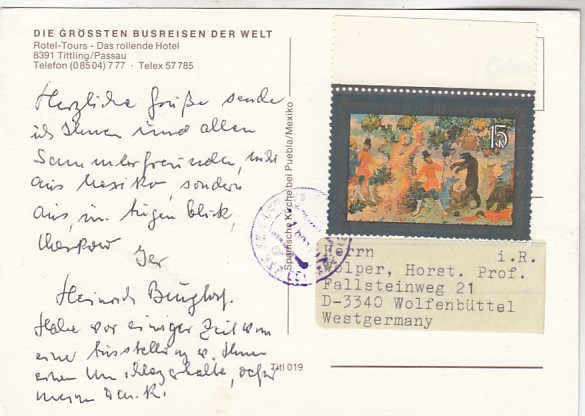 DIE GRÖSSTEN BUSREISEN DER WELT
Rotel-Tours - Das rollende Hotel
8391 Tittling/Passau
Telefon (0 85 04) 7 77 · Telex 57 785
Herzliche Grüße sende
ich Ihnen und allen
Sammlerfreunden, nicht
aus Mexiko, sondern
aus, im Augenblick,
Moskau Ihr
Heinrich
Habe vor einiger Zeit von
einer Ausstellung v. Ihnen
einen Umschlag erhalten,
meinen Dank.
Spanische Kirche bei Puebla/Mexiko
Titl 019
15
Herrn i.R.
Wolper, Horst. Prof.
Fallsteinweg 21
D-3340 Wolfenbüttel
Westgermany